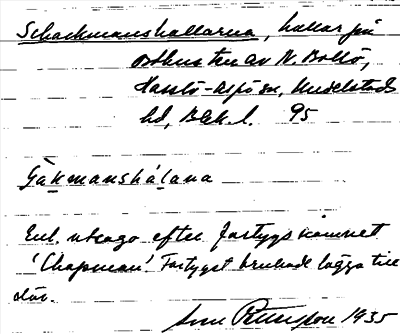 Schackmanshallarna, hallar på
östkusten av N. Bollö,
Hasslö-Aspö sn, Medelstads
hd, Blek. l. 95
Ga̱ḵmanshá̱ḻana
Enl. utsago efter fartygsnamnet
'Chapman'. Fartyget brukade lägga till
där.
Petersson 1935